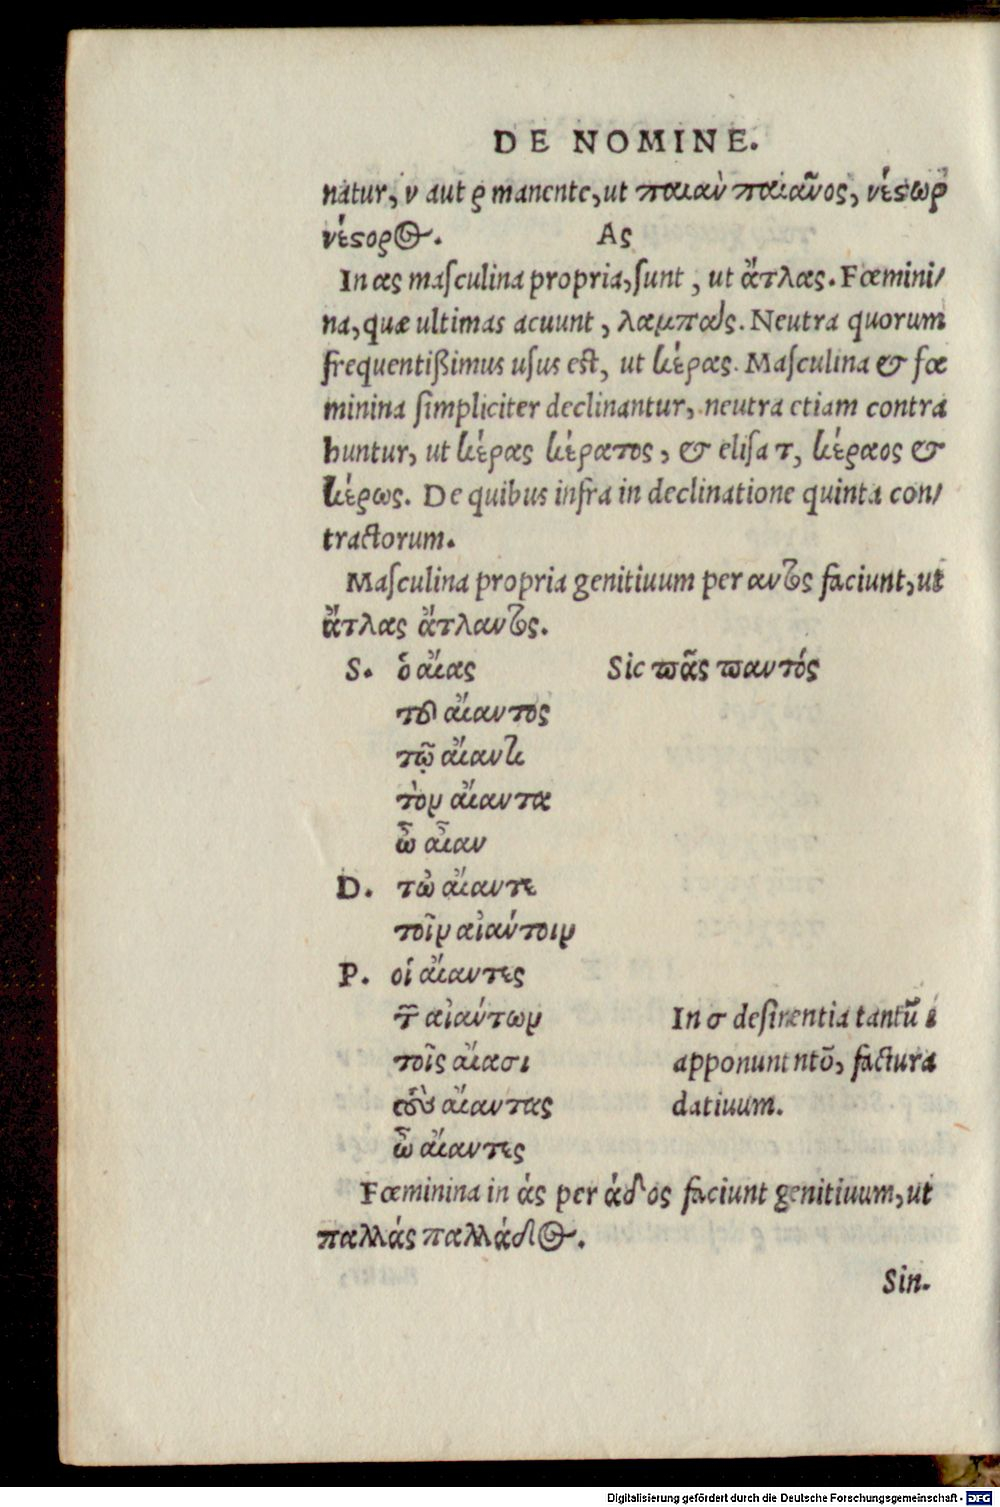 DE NOMINE.
natur, ν aut ρ manente, ut παιὰν παιᾶνος, νέςωρ
νέςορος.
Ας
In ας masculina propria, sunt, ut ἄτλας. Fœmini/
na, quæ ultimas acuunt, λαμπάς. Neutra quorum
frequentißimus usus est, ut κέρας. Masculina & fœ
minina simpliciter declinantur, neutra etiam contra
huntur, ut κέρας κέρατος, & elisa τ, κέραος &
κέρως. De quibus infra in declinatione quinta con/
tractorum.
Masculina propria genitiuum per αντος faciunt, ut
ἄτλας ἄτλαντος.
S. ὁ αἴας Sic πᾶς παντός
τοῦ αἴαντος
τῷ αἴαντι
τὸν αἴαντα
ὦ αἶαν
D. τὼ αἴαντε
τοῖν αἰάντοιν
P. οἱ αἴαντες
τῶν αἰάντων In σ desinentia tantũ ι
τοῖς αἴασι apponunt ntõ, factura
τοὺς αἴαντας datiuum.
ὦ αἴαντες
Fœminina in άς per άδος faciunt genitiuum, ut
παλλάς παλλάδος.
Sin.
Digitalisierung gefördert durch die Deutsche Forschungsgemeinschaft - DFG